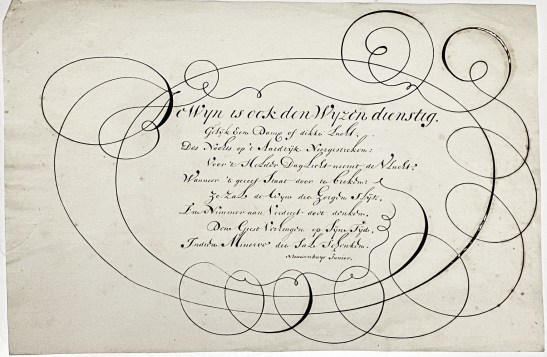 Wyn is ook den Wyzen dienstig.
Gelyk Een Damp of dikke Lucht,
Des Nachts op't Aardryk Neergestreken:
Voor't Helder Dag Licht neemt de Vlucht;
Wanneer 't gereet Staat door te breken:
Zo Zal de Wyn den Zorgen Slyt,
En Nimmer aan Verdriet doet denken,
Den Geest Verheugen op Syne Tyd,
Indien Minerve die Zal Schenken.
Junior.